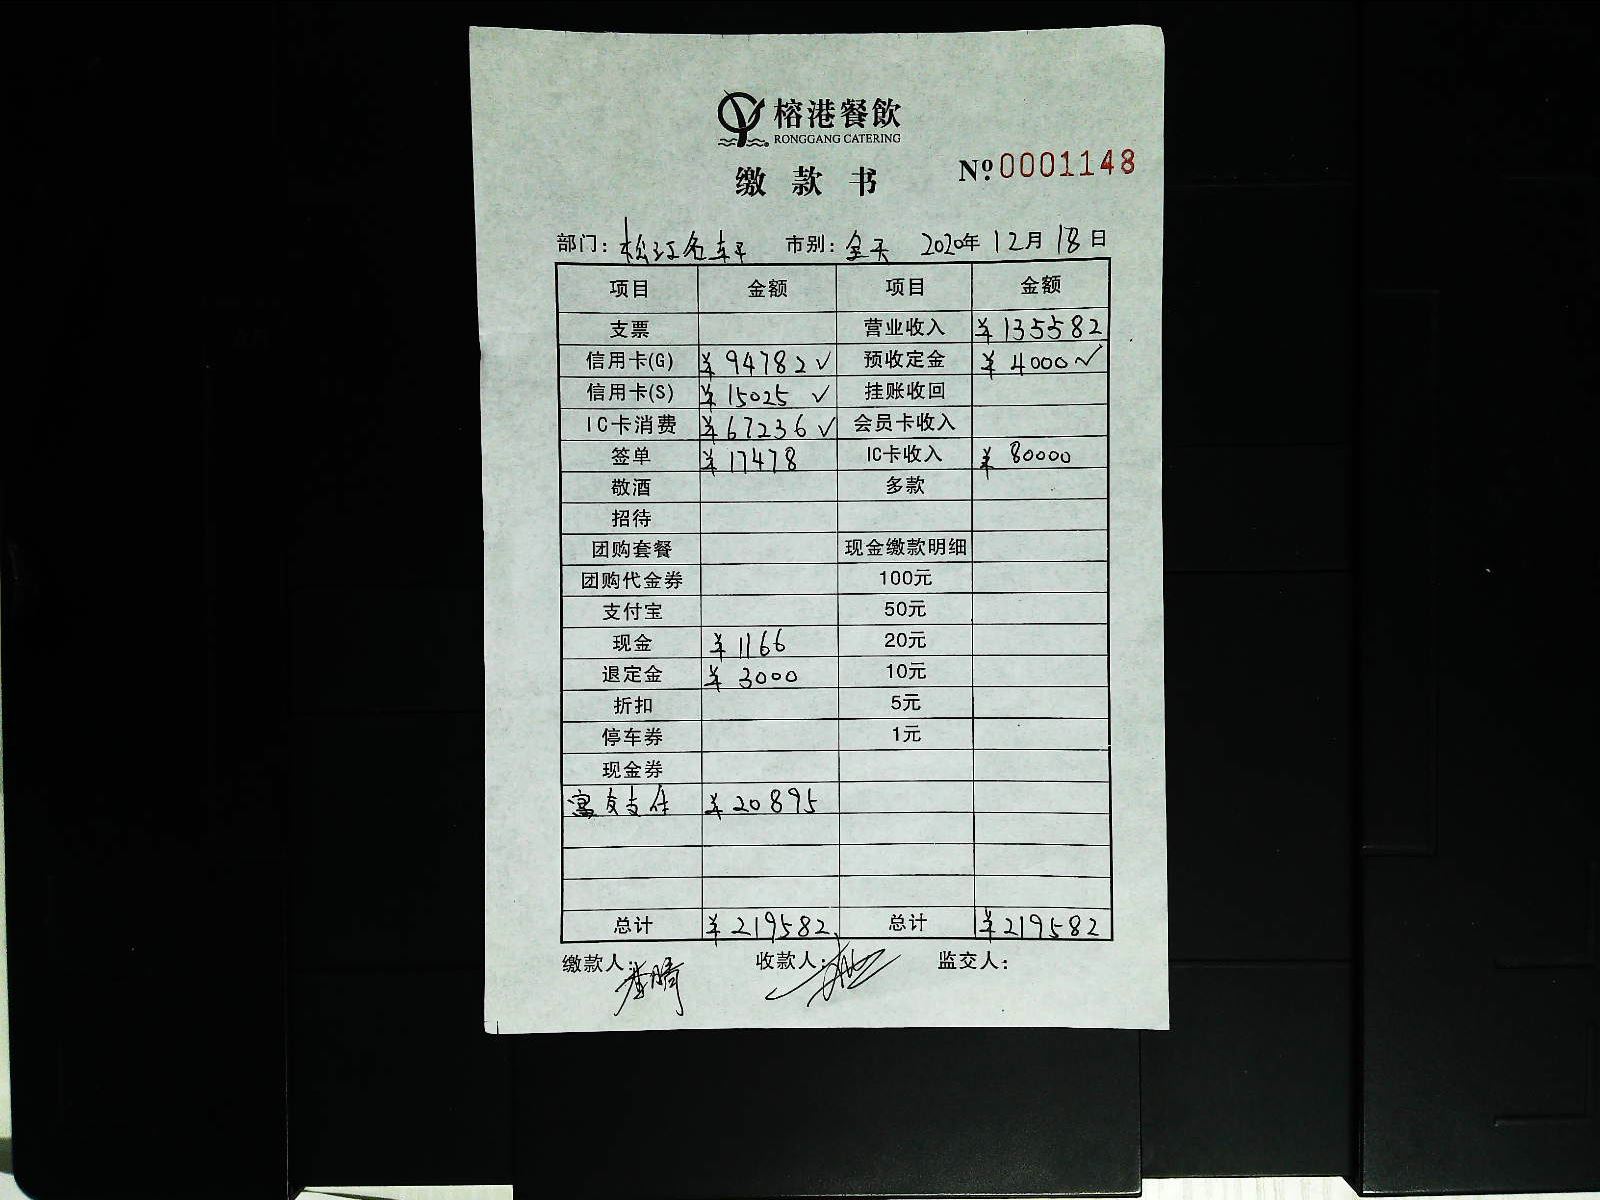 榕港餐飲
RONGGANG CATERING
缴款书 Nº 0001148
部门: 松江名轩 市别: 全天 2020年12月18日
项目 金额 项目 金额
支票 营业收入 ¥135582
信用卡(G) ¥94782✓ 预收定金 ¥4000✓
信用卡(S) ¥15025✓ 挂账收回
IC卡消费 ¥67236✓ 会员卡收入
签单 ¥17478 IC卡收入 ¥80000
敬酒 多款
招待
团购套餐 现金缴款明细
团购代金券 100元
支付宝 50元
现金 ¥1166 20元
退定金 ¥3000 10元
折扣 5元
停车券 1元
现金券
支付 ¥20895
总计 ¥219582 总计 ¥219582
缴款人: 收款人: 监交人: